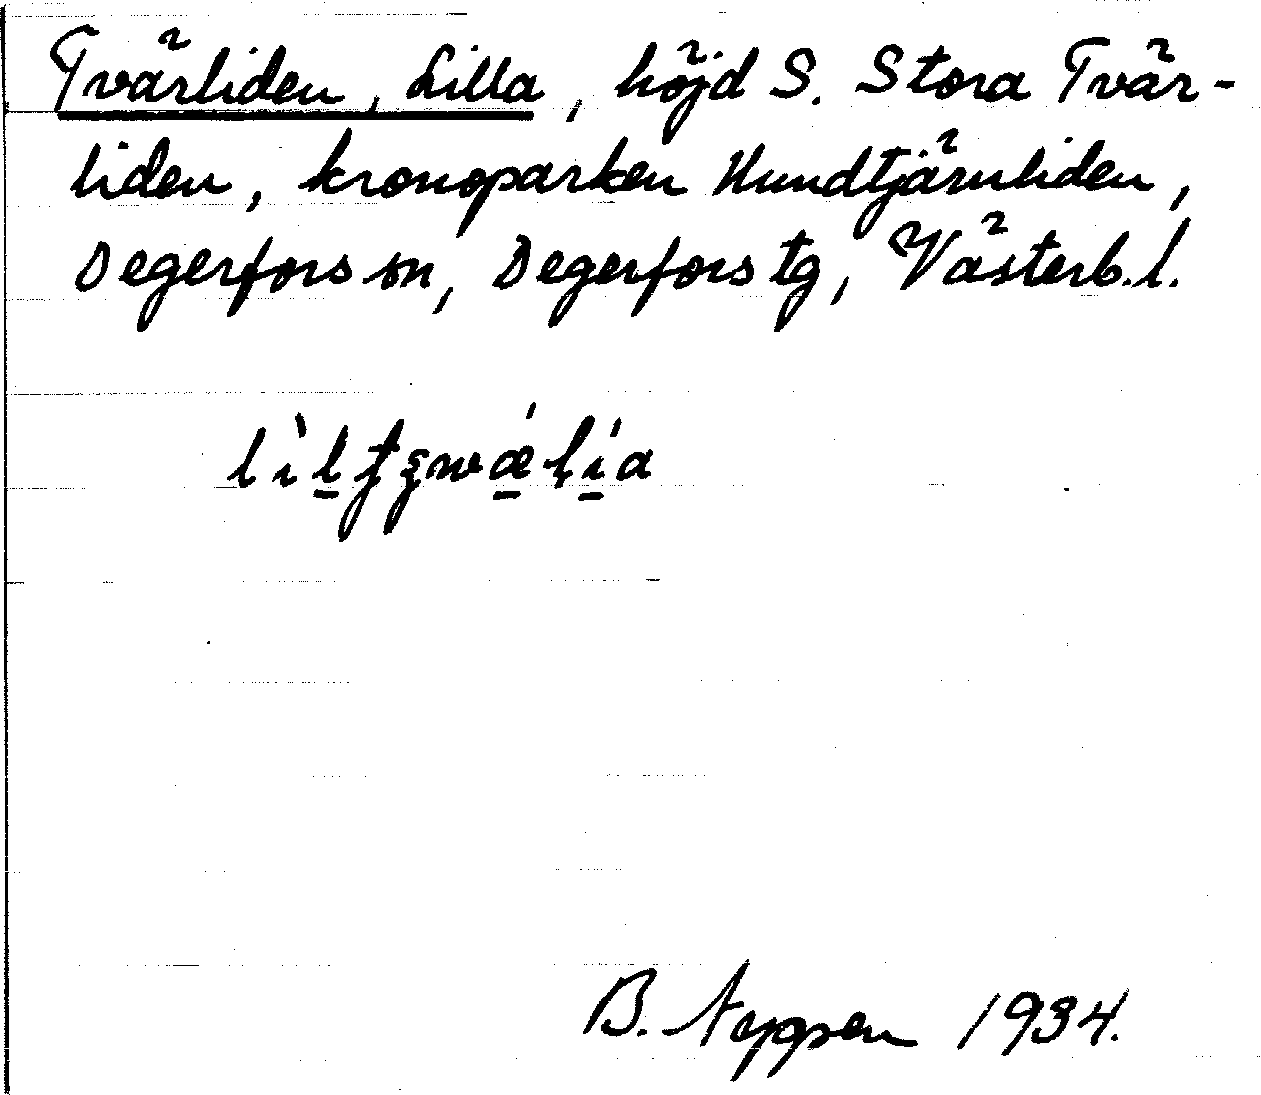 Tvärliden, Lilla, höjd S. Stora Tvär-
liden, kronoparken Hundtjärnliden,
Degerfors sn, Degerfors tg, Västerb. l.
B. 1934.